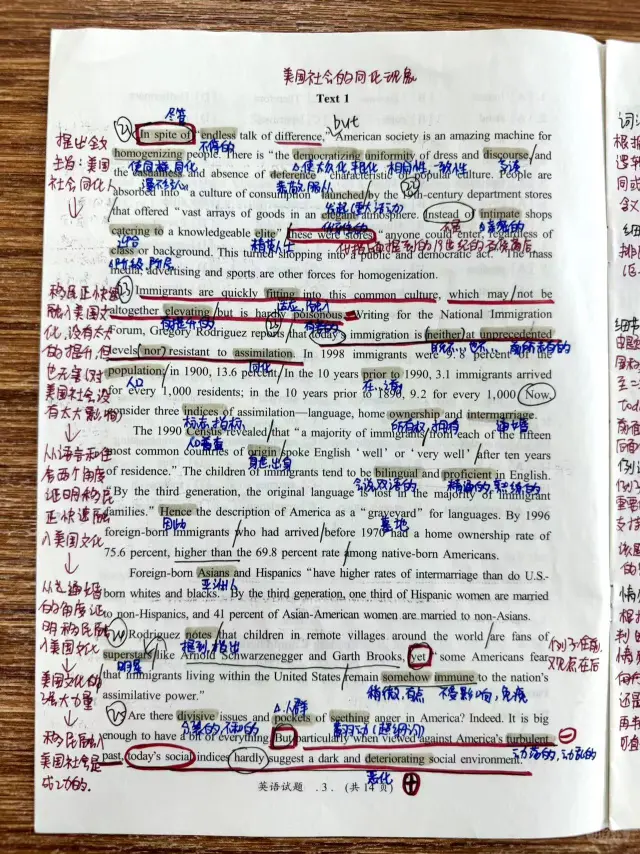 美国社会的同化现象
Text 1
尽管
but
In spite of endless talk of difference, American society is an amazing machine for
不停的
homogenizing people. There is "the democratizing uniformity of dress and discourse, and
使同福同化
the casualness and absence of deference" characteristic of popular culture. People are
absorbed into "a culture of consumption" launched by the 19th-century department stores
that offered "vast arrays of goods in an elegant atmosphere. Instead of intimate shops
catering to a knowledgeable elite" these were stores "anyone could enter, regardless of
迎合
class or background. This turned shopping into a public and democratic act." The mass
media, advertising and sports are other forces for homogenization.
Immigrants are quickly fitting into this common culture, which may not be
适应,融入
altogether elevating but is hardly poisonous. Writing for the National Immigration
有毒的
Forum, Gregory Rodriguez reports that today's immigration is neither at unprecedented
levels nor resistant to assimilation. In 1998 immigrants were 9.8 percent of the
同化
population; in 1900, 13.6 percent. In the 10 years prior to 1990, 3.1 immigrants arrived
人口
for every 1,000 residents; in the 10 years prior to 1890, 9.2 for every 1,000 Now,
consider three indices of assimilation—language, home ownership and intermarriage.
标志,指标
所有权,拥有
通婚
The 1990 Census revealed that "a majority of immigrants from each of the fifteen
人口普查
most common countries of origin spoke English 'well' or 'very well' after ten years
出身
of residence." The children of immigrants tend to be bilingual and proficient in English.
会说双语的
精通的,熟练的
"By the third generation, the original language is lost in the majority of immigrant
families." Hence the description of America as a "graveyard" for languages. By 1996
因此
墓地
foreign-born immigrants who had arrived before 1970 had a home ownership rate of
75.6 percent, higher than the 69.8 percent rate among native-born Americans.
Foreign-born Asians and Hispanics "have higher rates of intermarriage than do U.S.-
亚洲人
born whites and blacks." By the third generation, one third of Hispanic women are married
to non-Hispanics, and 41 percent of Asian-American women are married to non-Asians.
Rodriguez notes that children in remote villages around the world are fans of
提到,指出
superstars like Arnold Schwarzenegger and Garth Brooks, yet "some Americans fear
明星
that immigrants living within the United States remain somehow immune to the nation's
稍微,有点
不受影响,免疫
assimilative power."
人群
Are there divisive issues and pockets of seething anger in America? Indeed. It is big
enough to have a bit of everything. But particularly when viewed against America's turbulent
past, today's social indices hardly suggest a dark and deteriorating social environment.
动荡的,动乱的
恶化
提出全文
主旨:美国
社会同化人
移民正快速
融入美国文
化,没有太大
的提升,但
也无害(对
美国社会没
有太大影响)
从语言和住
房两个角度
证明移民
正快速融
入美国文化
从通婚
的角度证
明移民融
入美国文化
美国文化的
强大力量
移民融入
美国社会是
成功的.
例子在前,
观点在后
英语试题 . 3 . (共 14 页)